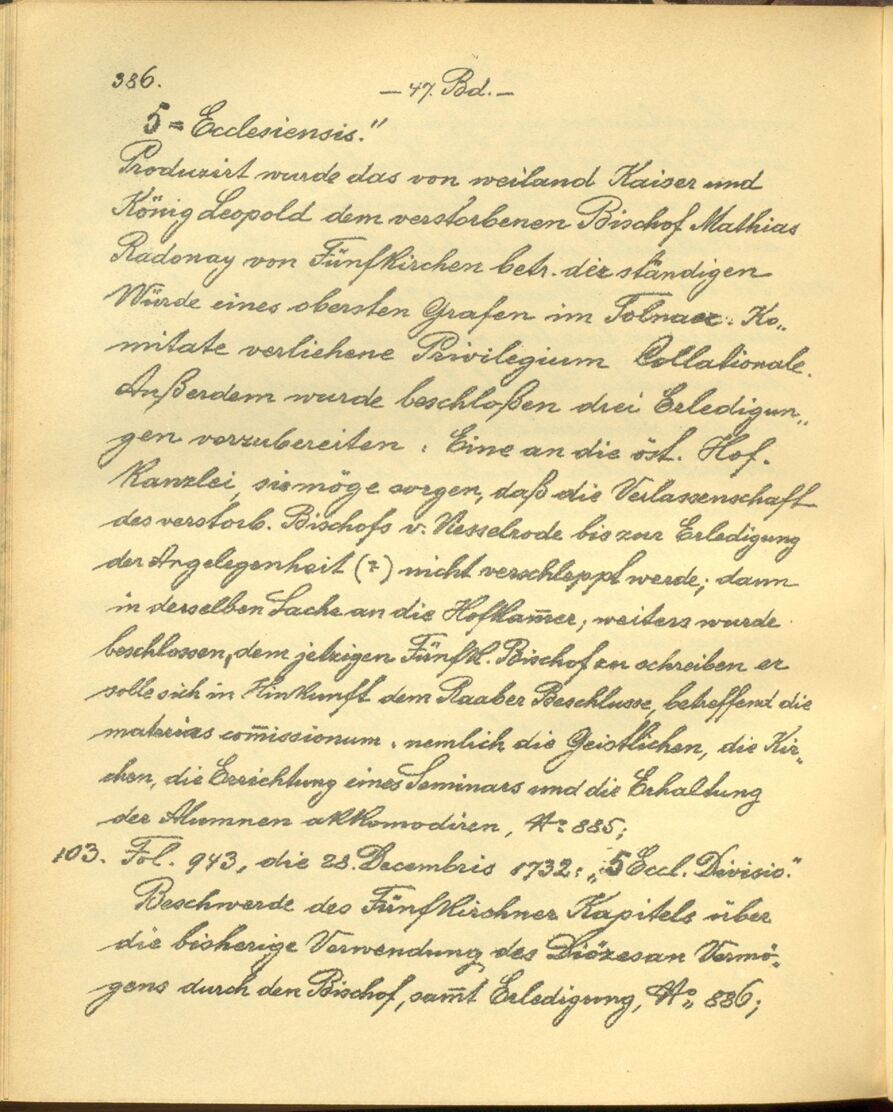 386.
— 47. Bd. —
5 = Ecclesiensis."
Produzirt wurde das von weiland Kaiser und
König Leopold dem verstorbenen Bischof Mathias
Radonay von Fünfkirchen betr. der ständigen
Würde eines obersten Grafen im Tolnaer Ko„
mitate verliehene Privilegium Collationale.
Außerdem wurde beschloßen drei Erledigun„
gen vorzubereiten: Eine an die öst. Hof-
kanzlei, sie möge sorgen, daß die Verlassenschaft
des verstorb. Bischofs v. Nesselrode bis zur Erledigung
der Angelegenheit (?) nicht verschleppt werde; dann
in derselben Sache an die Hofkam̄er; weiters wurde
beschlossen, dem jetzigen Fünfk. Bischof zu schreiben er
solle sich in Hinkunft dem Raaber Beschlusse, betreffend die
materias com̄issionum, nemlich die Geistlichen, die Kir„
chen, die Errichtung eines Seminars und die Erhaltung
der Alumnen akkomodiren, № 885;
103. Fol. 943, die 28. Decembris 1732: „5 Eccl. Divisio."
Beschwerde des Fünfkirchner Kapitels über
die bisherige Verwendung des Diözesan Vermö„
gens durch den Bischof, sam̄t Erledigung, № 886;